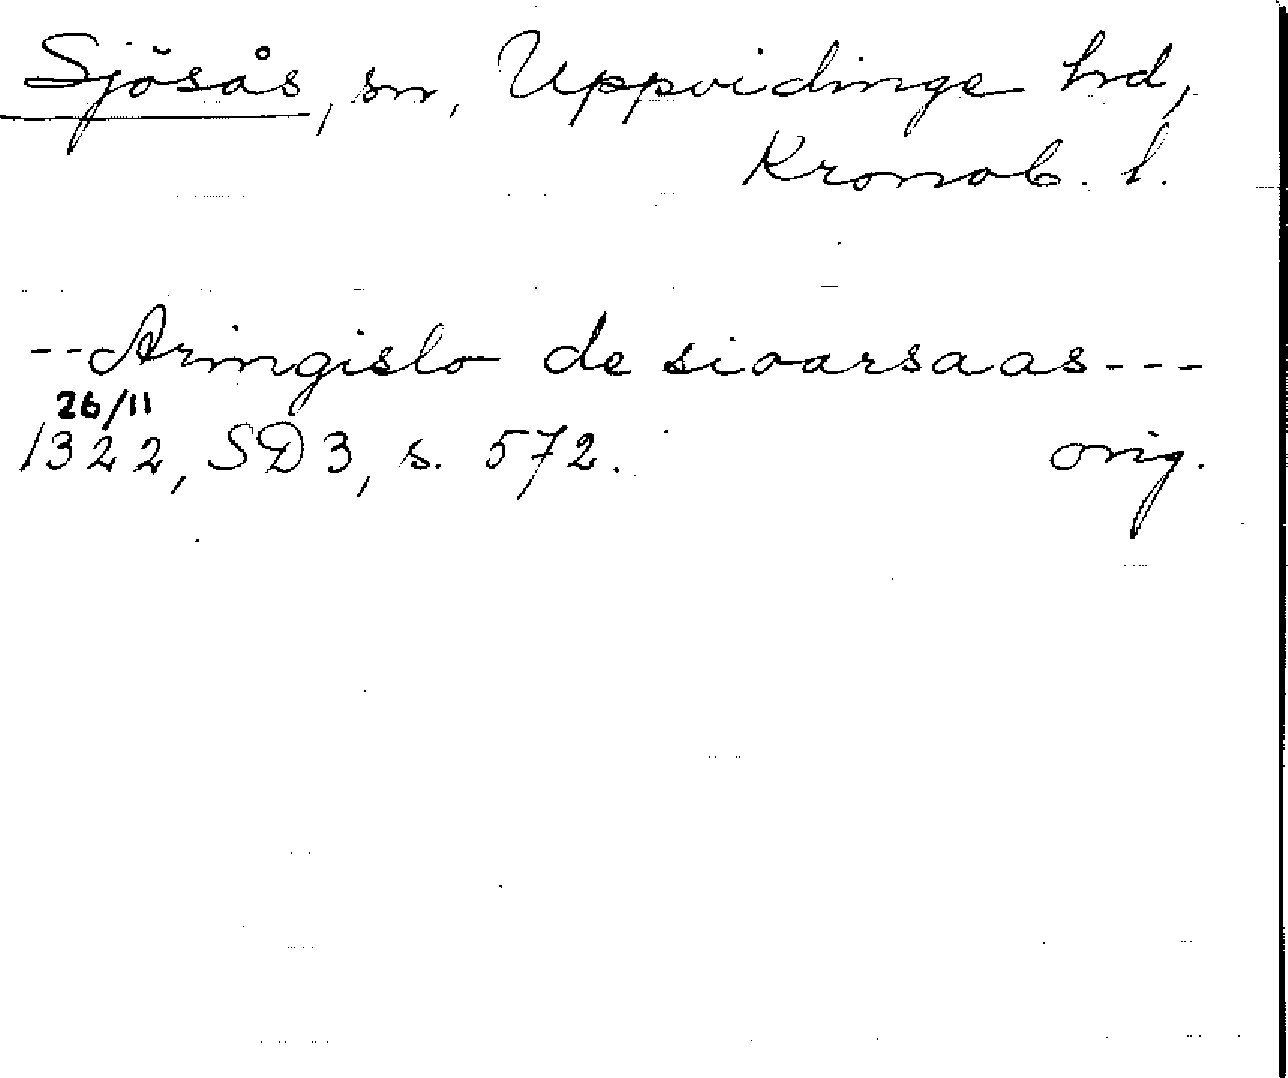 Sjösås, sn, Uppvidinge hd,
Kronob. l.
--Aringislo de sioarsaas---
26/11
1322, SD3, s. 572. orig.